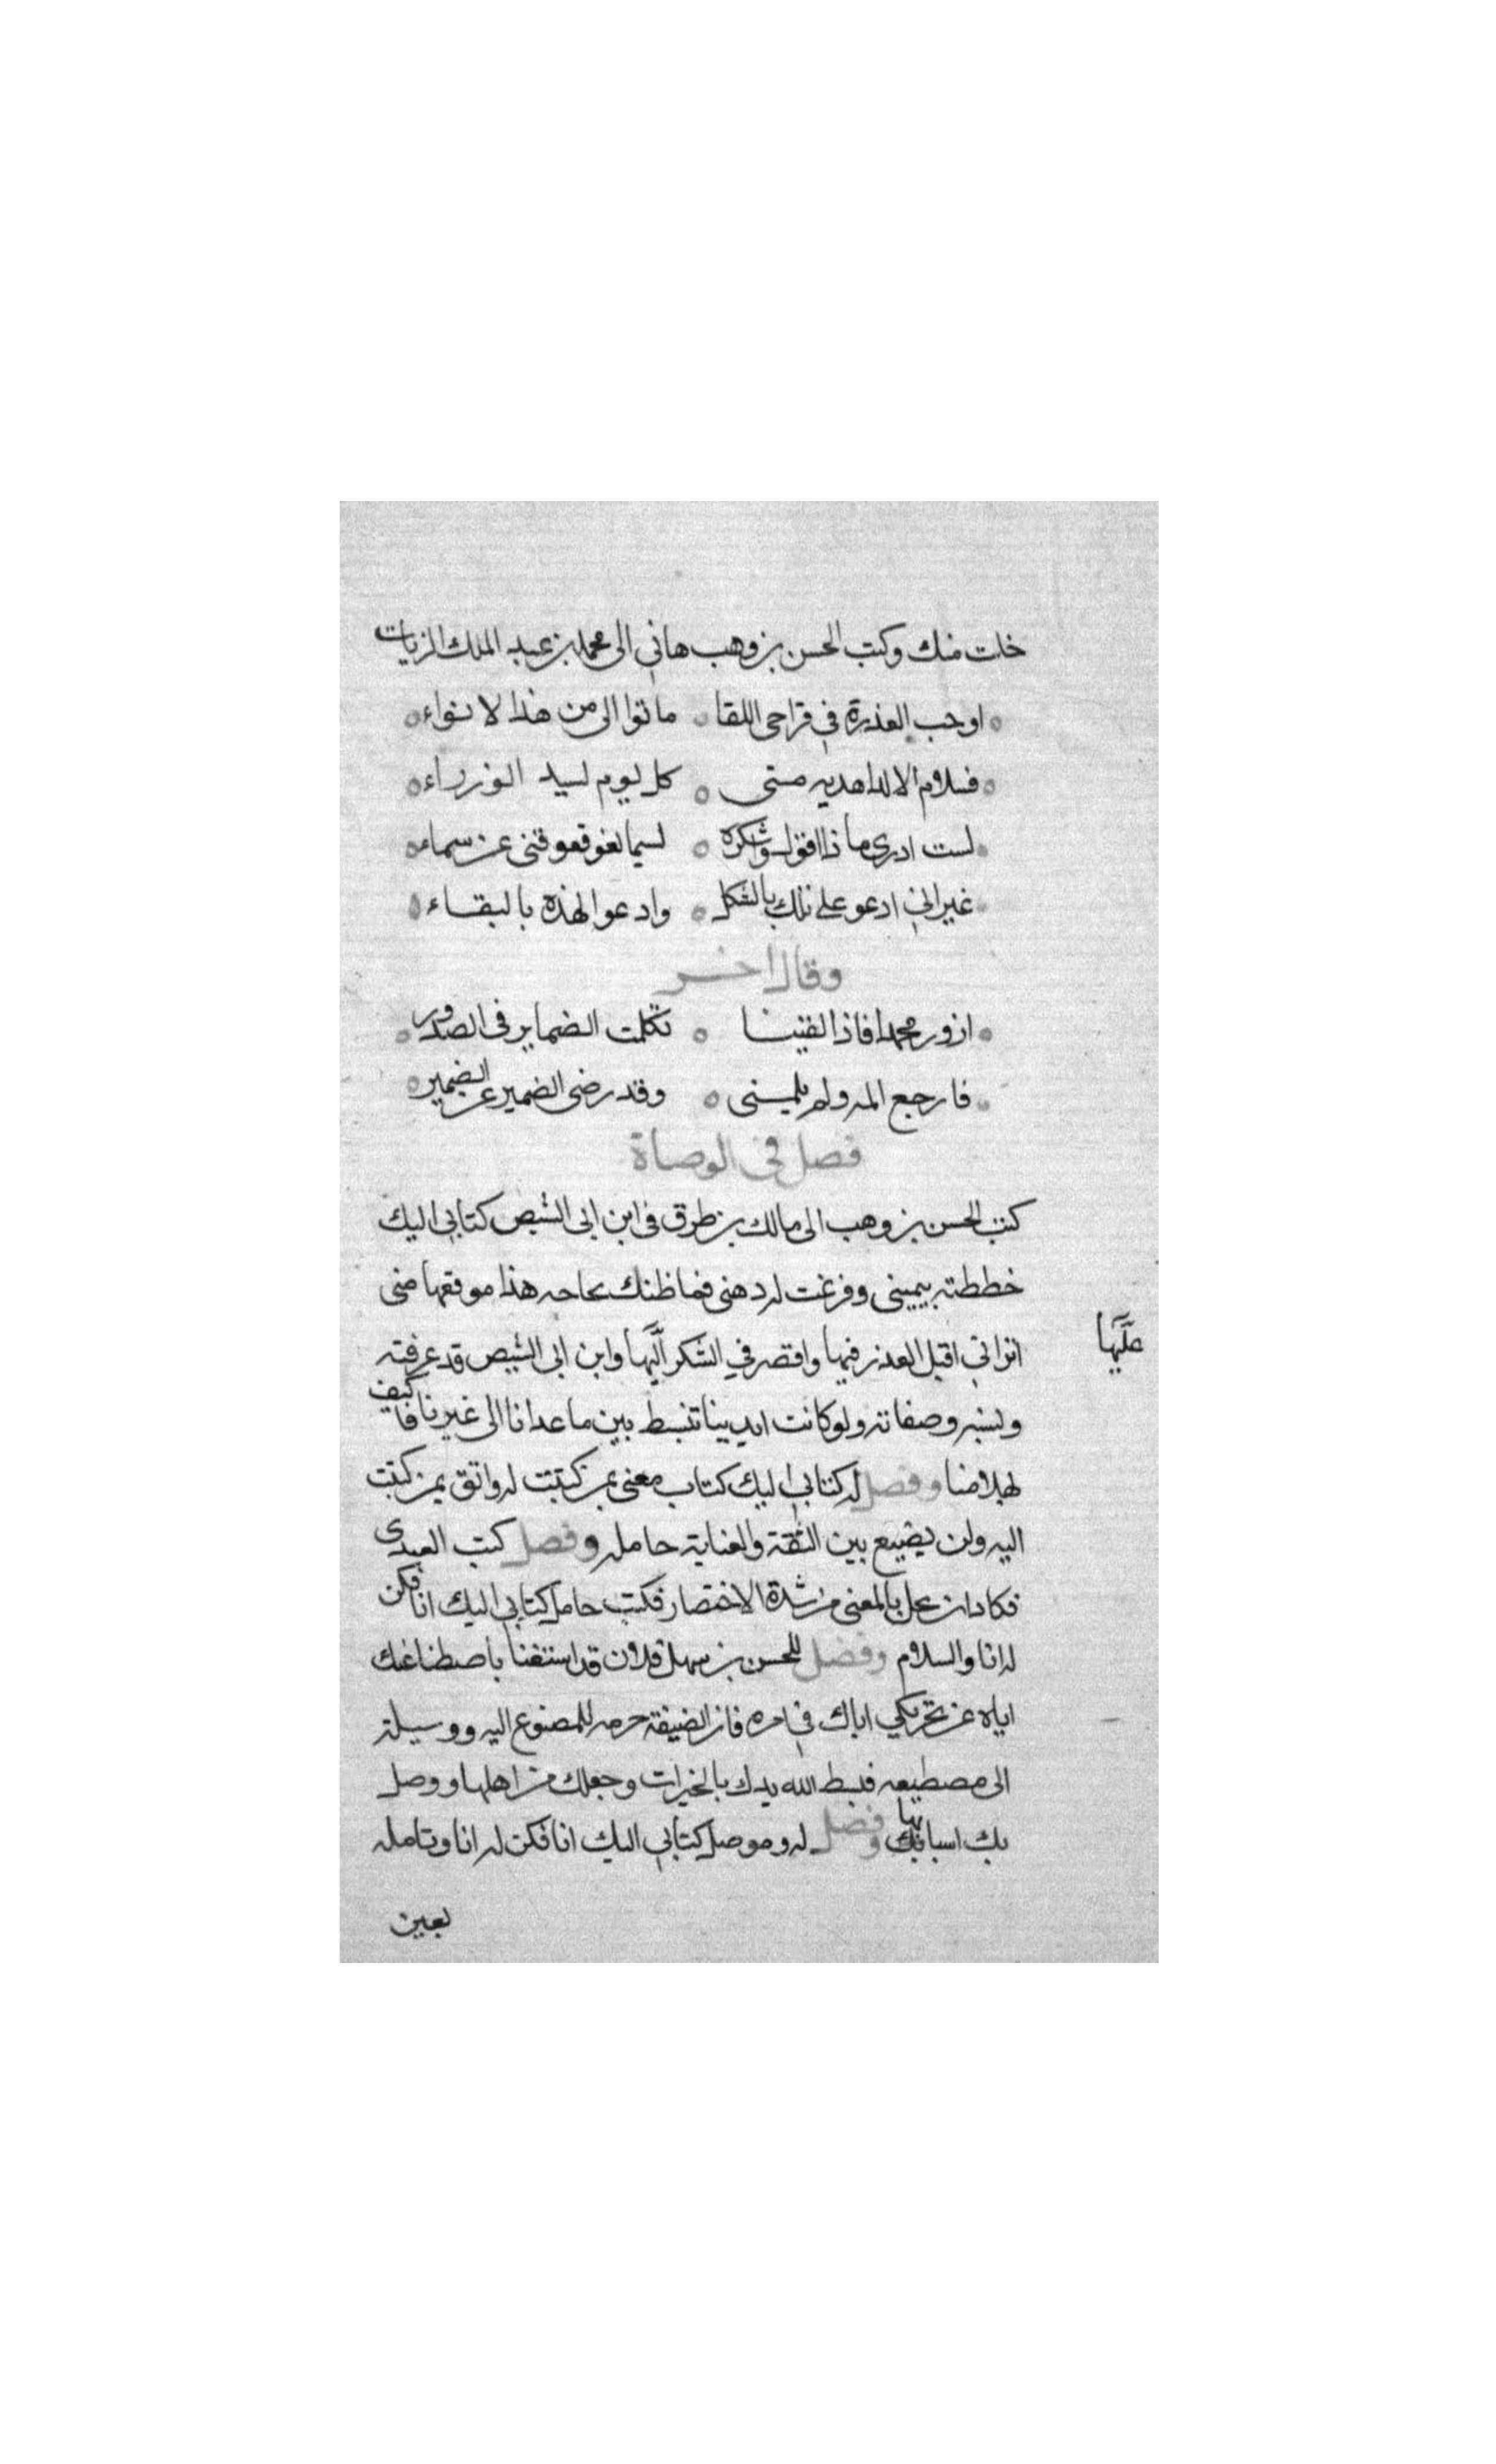 خلت منك وكتب الحسن بن وهب هاني الى محمد بن عبد الملك الزيات
اوجب العذرة في تراخى اللقا ما توالى من هذا لانواء
فسلام الاله اهديه منى كل يوم لسيد الوزراء
لست ادرى ماذا اقول واشكره لسما تعوقعوقتنى عن سماء
غير انى ادعو على تلك بالثكل وادعو لهذه بالبقاء
وقال اخر
ازور محمدا فاذا لقينا تكلمت الضماير فى الصدور
فارجع المه ولم يلمنى وقد رضى الضمير عن الضمير
فصل فى الوصاة
كتب الحسن بن وهب الى مالك بن طوق فى ابن ابى الشيص كتابى اليك
خططته بيمينى وفرغت له ذهنى فما ظنك بحاجه هذا موقعها منى
اترانى اقبل العذر فيها واقصر فى الشكر اليها وابن ابى الشيص قد عرفته
عليها
ونسبه وصفاته ولو كانت ايدينا تنبسط بين ما عدانا الى غيرنا فاكيف
لهلامنا وفصل له كتابى اليك كتاب معنى بمن كتبت له واثق بمن كتبت
اليه ولن يضيع بين الثقة والعناية حامله وفصل كتب العبدى
فكاد ان يحل بالمعنى من شدة الاختصار فكتب حامل كتابى اليك انا فكن
له انا والسلام وفصل للحسن بن سهل فلان قد استغنا باصطناعك
اياه عن تحريكي اياك في امره فان الصنيعة حرمه للمصنوع اليه ووسيلة
الى مصطنعه فبسط الله يدك بالخيرات وجعلك من اهلها ووصل
بك اسبابك بها وفصل له وموصل كتابى اليك انا فكن له انا وتامله
بعين